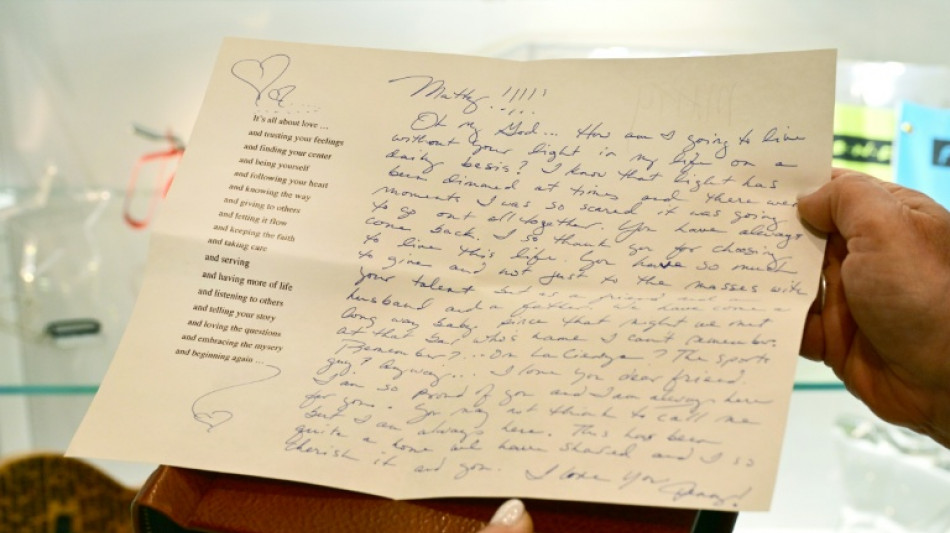 It's all about love ...
and trusting your feelings
and finding your center
and being yourself
and following your heart
and knowing the way
and giving to others
and letting it flow
and keeping the faith
and taking care
and serving
and having more of life
and listening to others
and telling your story
and loving the questions
and embracing the mysery
and beginning again ...
Matty..!!!!!
Oh my God... How am I going to live
without your light in my life on a
daily basis? I know that light has
been dimmed at times and there were
moments I was so scared it was going
to go out all together. You have always
come back. I so thank you for choosing
to live this life. You have so much
to give and not just to the masses with
your talent but as a friend and a
husband and a father. We have come a
long way baby. Since that night we met
at that bar who's name I can't remember.
Remember?... On La Cienega? The sports
guy? Anyway... I love you dear friend.
I am so proud of you and I am always here
for you. You may not think to call me
but I am always here. This has been
quite a home we have shared and I so
cherish it and you. I love you